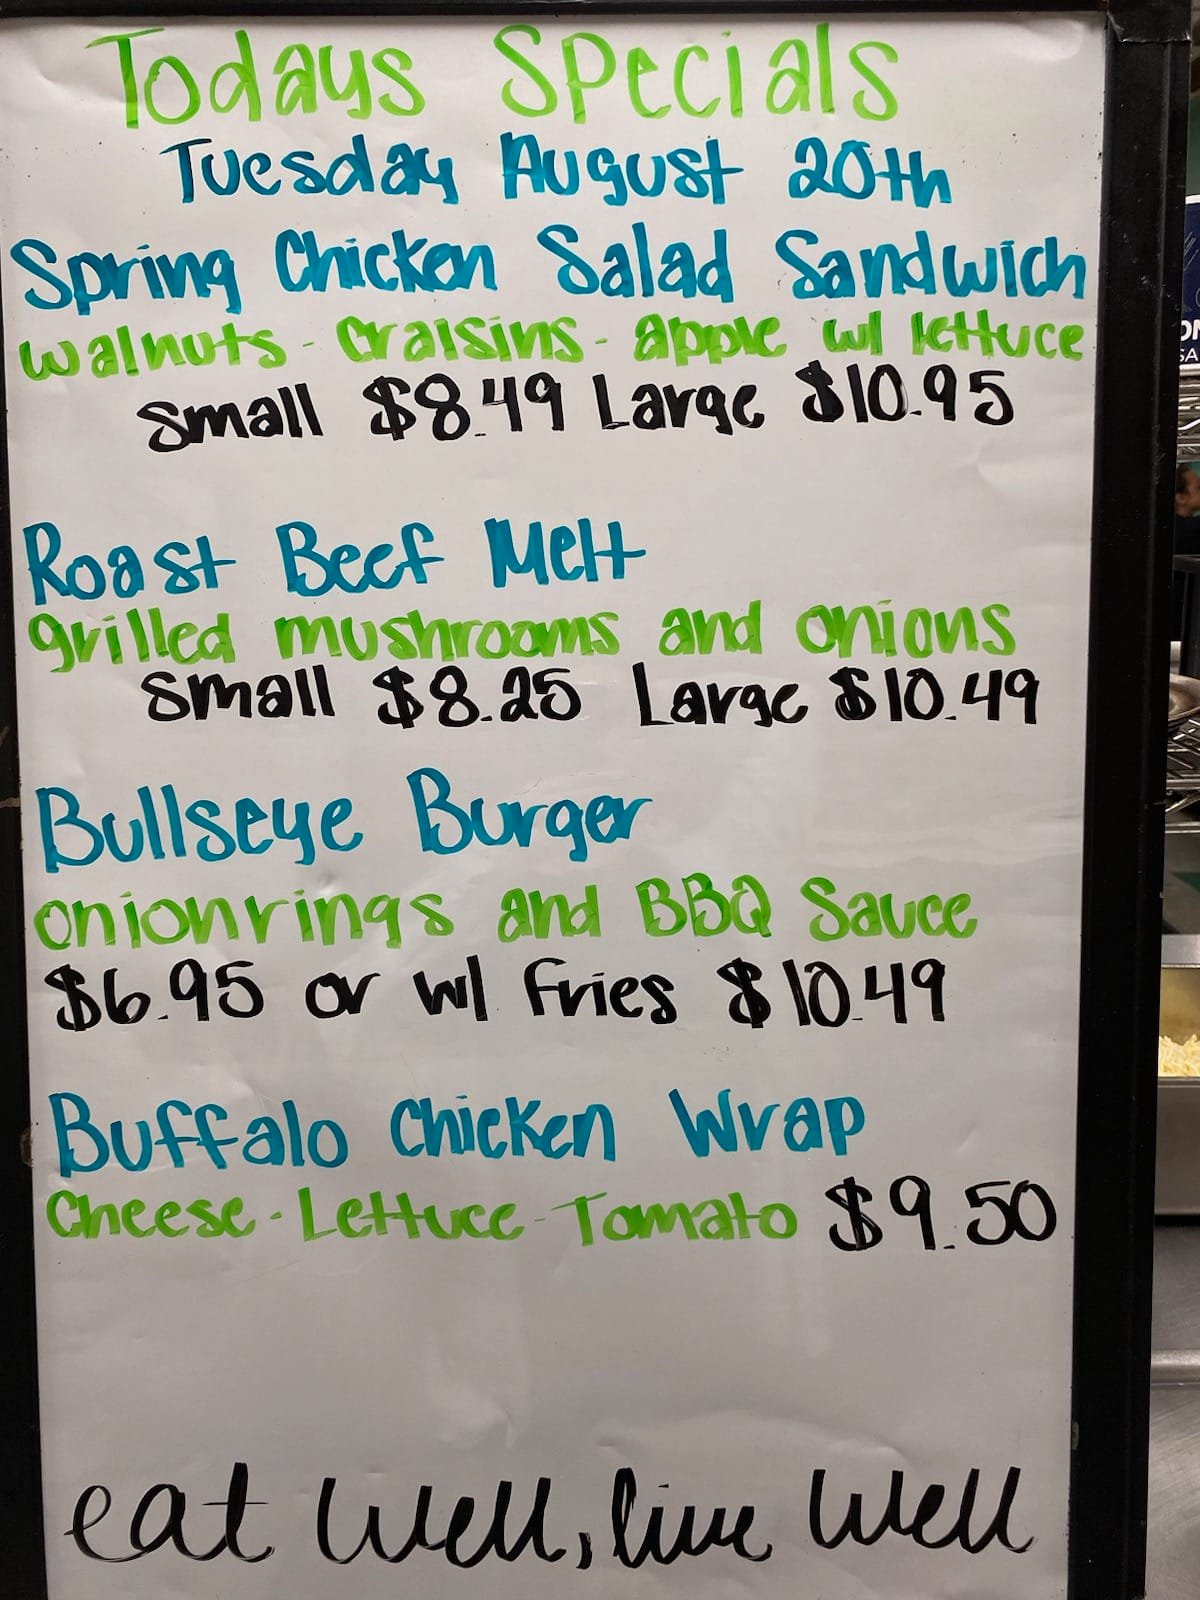 Todays Specials
Tuesday August 20th
Spring Chicken Salad Sandwich
walnuts - craisins - apple w/ lettuce
Small $8.49 Large $10.95
Roast Beef Melt
grilled mushrooms and onions
Small $8.25 Large $10.49
Bullseye Burger
onionrings and BBQ Sauce
$6.95 or w/ Fries $10.49
Buffalo Chicken Wrap
Cheese - Lettuce - Tomato $9.50
eat well, live well